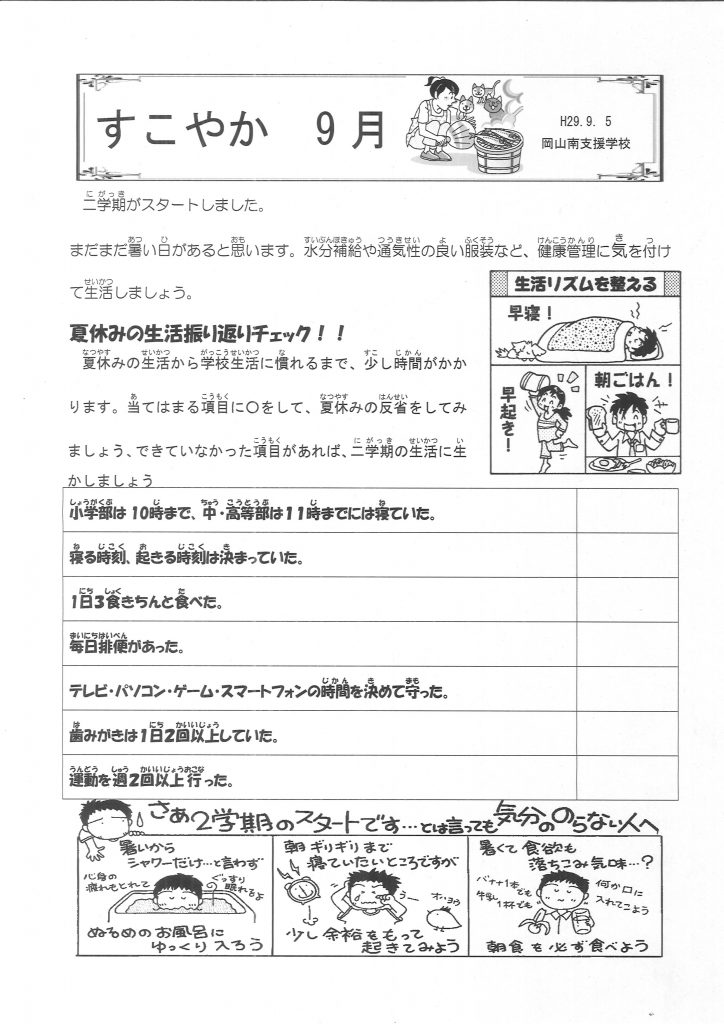 すこやか 9月
H29.9. 5
岡山南支援学校
二学期がスタートしました。
まだまだ暑い日があると思います。水分補給や通気性の良い服装など、健康管理に気を付け
て生活しましょう。
生活リズムを整える
早寝!
早起き!
朝ごはん!
夏休みの生活振り返りチェック!!
夏休みの生活から学校生活に慣れるまで、少し時間がかか
ります。当てはまる項目に〇をして、夏休みの反省をしてみ
ましょう、できていなかった項目があれば、二学期の生活に生
かしましょう
小学部は10時まで、中・高等部は11時までには寝ていた。
寝る時刻、起きる時刻は決まっていた。
1日3食きちんと食べた。
毎日排便があった。
テレビ・パソコン・ゲーム・スマートフォンの時間を決めて守った。
歯みがきは1日2回以上していた。
運動を週2回以上行った。
さあ2学期のスタートです…とは言っても気分ののらない人へ
暑いから
シャワーだけ…と言わず
心身の
疲れもとれて
ぐっすり
眠れるよ
ぬるめのお風呂に
ゆっくり入ろう
朝ギリギリまで
寝ていたいところですが
オハヨウ
少し余裕をもって
起きてみよう
暑くて食欲も
落ちこみ気味…?
バナナ1本でも
牛乳1杯でも
何か口に
入れてこよう
朝食を必ず食べよう